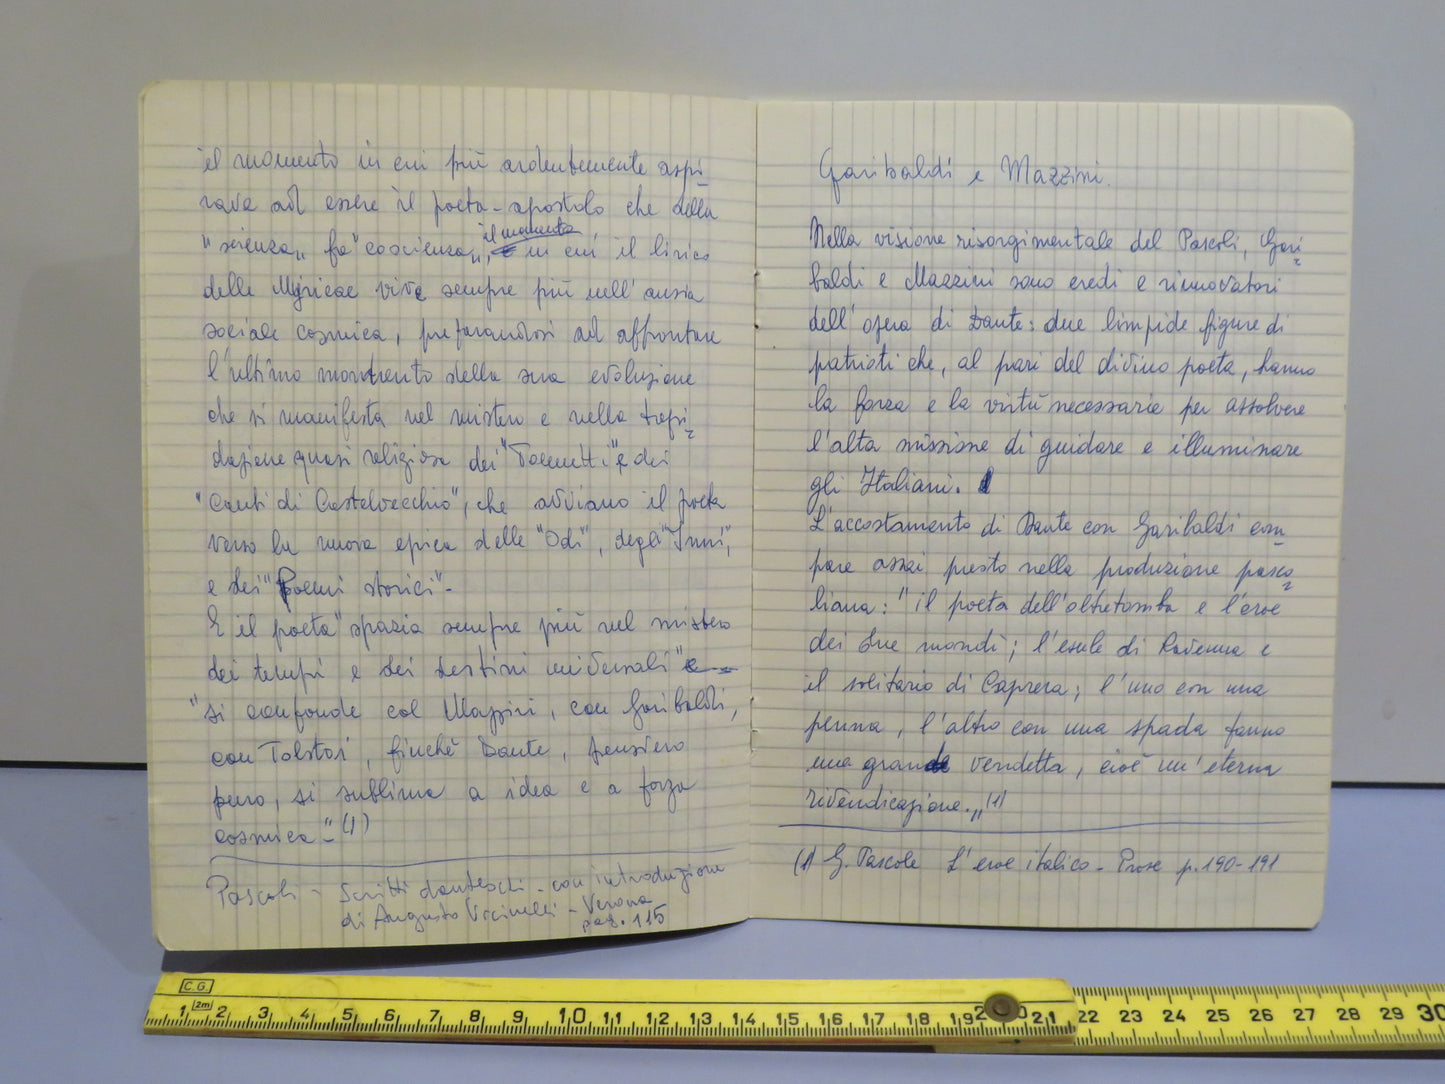 il momento in cui più ardentemente aspi-
rava ad essere il poeta-apostolo che della
"scienza" fa "coscienza", il momento in cui il lirico
delle Myricae vive sempre più nell'ansia
sociale cosmica, preparandosi ad affrontare
l'ultimo momento della sua evoluzione
che si manifesta nel mistero e nella trepi-
dazione quasi religiosa dei "Poemetti" e dei
"Canti di Castelvecchio", che avviano il poeta
verso la nuova epica delle "Odi", degli "Inni",
e dei "Poemi storici"-
E il poeta "spazia sempre più nel mistero
dei tempi e dei destini universali"
"si confonde col Mazzini, con Garibaldi,
con Tolstoi, finché Dante, pensiero
puro, si sublima a idea e a forza
cosmica-" (1)
Pascoli - Scritti danteschi - con introduzione
di Augusto Vicinelli - Verona
pag. 115
Garibaldi e Mazzini.
Nella visione risorgimentale del Pascoli, Gari-
baldi e Mazzini sono eredi e rinnovatori
dell'opera di Dante: due limpide figure di
patrioti che, al pari del divino poeta, hanno
la forza e la virtù necessarie per assolvere
l'alta missione di guidare e illuminare
gli Italiani.
L'accostamento di Dante con Garibaldi com-
pare assai presto nella produzione pasco-
liana: "il poeta dell'oltretomba e l'eroe
dei due mondi; l'esule di Ravenna e
il solitario di Caprera; l'uno con una
penna, l'altro con una spada fanno
una grande vendetta, cioè un'eterna
rivendicazione." (1)
(1) G. Pascoli L'eroe italico - Prose p. 190-191
C.G.
2m
1 2 3 4 5 6 7 8 9 10 11 12 13 14 15 16 17 18 19 20 21 22 23 24 25 26 27 28 29 30